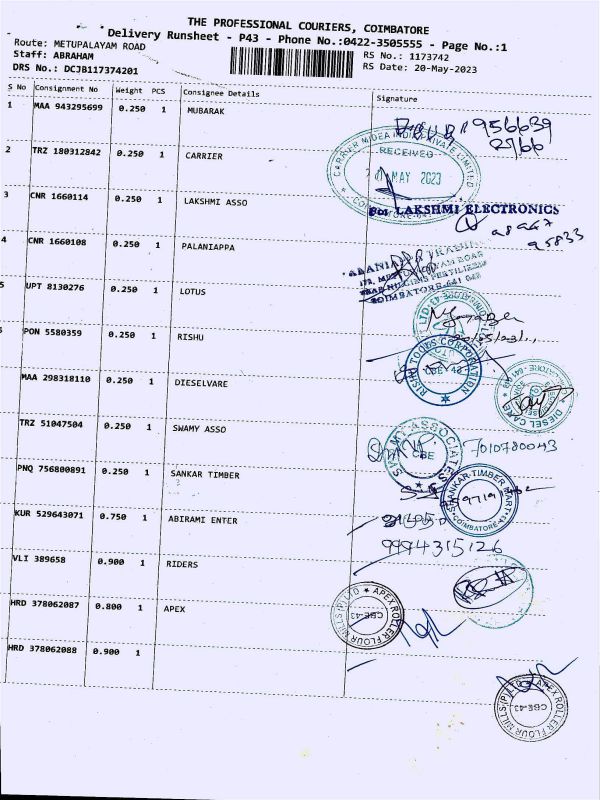 THE PROFESSIONAL COURIERS, COIMBATORE
Delivery Runsheet - P43 - Phone No.:0422-3505555 - Page No.:1
Route: METUPALAYAM ROAD
RS No.: 1173742
Staff: ABRAHAM
RS Date: 20-May-2023
DRS No.: DCJB117374201
S No Consignment No Weight PCS Consignee Details Signature
1 MAA 943295699 0.250 1 MUBARAK
956639
2 TRZ 180312842 0.250 1 CARRIER
CARRIER MIDEA INDIA PRIVATE LIMITED
RECEIVED
MAY 2023
3 CNR 1660114 0.250 1 LAKSHMI ASSO
For LAKSHMI ELECTRONICS
95833
4 CNR 1660108 0.250 1 PALANIAPPA
COIMBATORE-641 043
5 UPT 8130276 0.250 1 LOTUS
PON 5580359 0.250 1 RISHU
CBE 43
MAA 298318110 0.250 1 DIESELVARE
TRZ 51047504 0.250 1 SWAMY ASSO
SWAMY ASSOCIATES
CBE
7010780043
PNQ 756800891 0.250 1 SANKAR TIMBER
SANKAR TIMBER MART
COIMBATORE-43
KUR 529643071 0.750 1 ABIRAMI ENTER
9994315126
VLI 389658 0.900 1 RIDERS
HRD 378062087 0.800 1 APEX
APEX ROLLER FLOUR MILLS (P) LTD
CBE-43
HRD 378062088 0.900 1
APEX ROLLER FLOUR MILLS (P) LTD
CBE-43